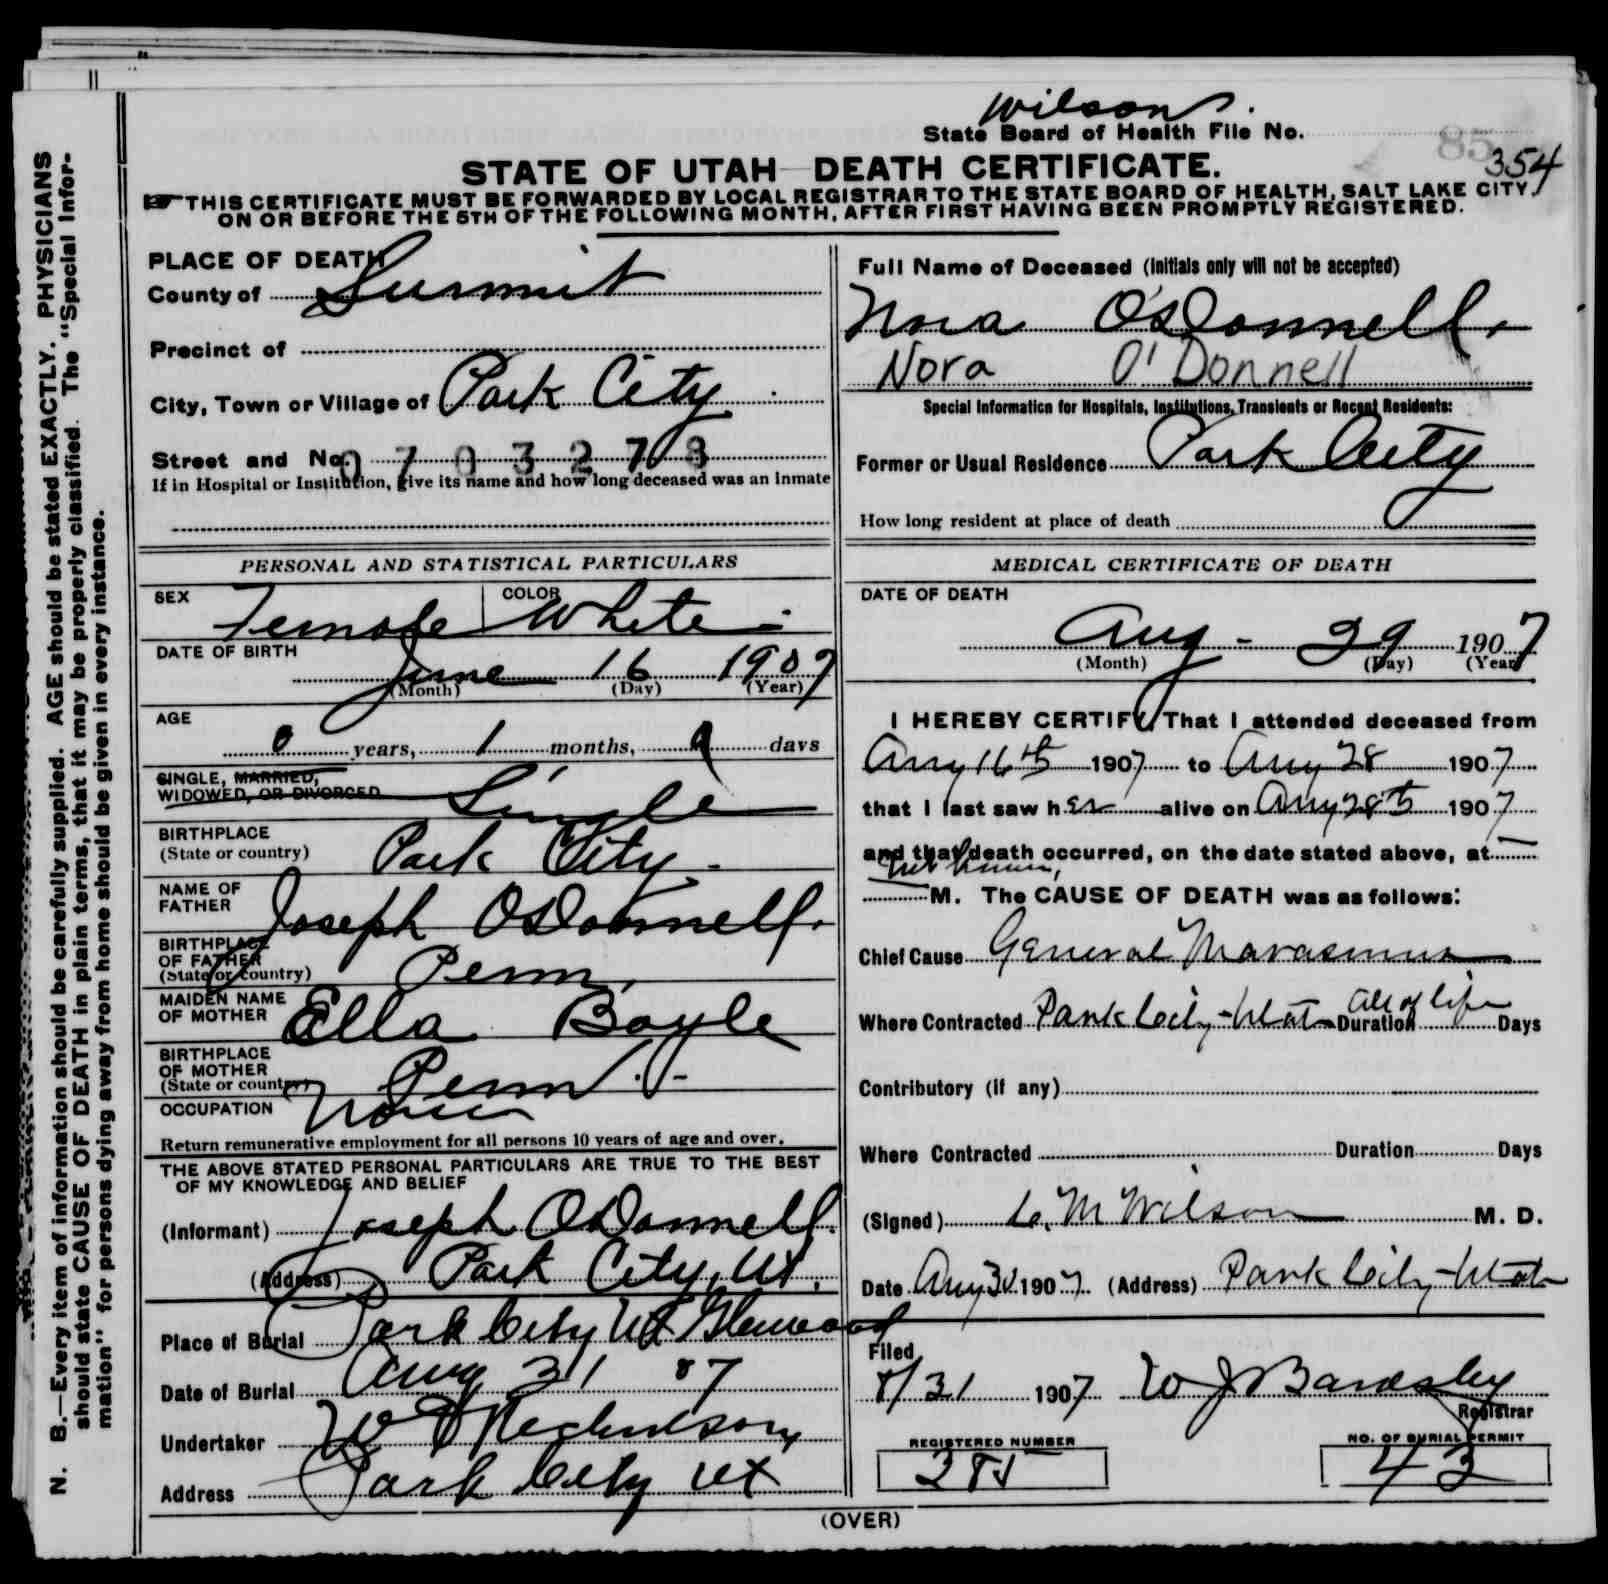 Wilson.
State Board of Health File No. 85
354
STATE OF UTAH—DEATH CERTIFICATE.
THIS CERTIFICATE MUST BE FORWARDED BY LOCAL REGISTRAR TO THE STATE BOARD OF HEALTH, SALT LAKE CITY,
ON OR BEFORE THE 5TH OF THE FOLLOWING MONTH, AFTER FIRST HAVING BEEN PROMPTLY REGISTERED.
N. B.—Every item of information should be carefully supplied. AGE should be stated EXACTLY. PHYSICIANS
should state CAUSE OF DEATH in plain terms, that it may be properly classified. The "Special Infor-
mation" for persons dying away from home should be given in every instance.
PLACE OF DEATH
County of Summit
Precinct of
City, Town or Village of Park City
Street and No.
0703273
If in Hospital or Institution, give its name and how long deceased was an inmate
PERSONAL AND STATISTICAL PARTICULARS
SEX Female COLOR White
DATE OF BIRTH
June 16 1907
(Month) (Day) (Year)
AGE
0 years, 1 months, 9 days
SINGLE, MARRIED,
WIDOWED, OR DIVORCED Single
BIRTHPLACE
(State or country) Park City
NAME OF
FATHER Joseph O'Donnell
BIRTHPLACE
OF FATHER
(State or country) Penn,
MAIDEN NAME
OF MOTHER Ella Boyle
BIRTHPLACE
OF MOTHER
(State or country) Penn.
OCCUPATION None
Return remunerative employment for all persons 10 years of age and over.
THE ABOVE STATED PERSONAL PARTICULARS ARE TRUE TO THE BEST
OF MY KNOWLEDGE AND BELIEF
(Informant) Joseph O'Donnell.
(Address) Park City, Ut.
Place of Burial Park City Ut Glenwood
Date of Burial Aug 31 07
Undertaker W
Address Park City Ut
Full Name of Deceased (Initials only will not be accepted)
Nora O'Donnell.
Nora O'Donnell
Special Information for Hospitals, Institutions, Transients or Recent Residents:
Former or Usual Residence Park City
How long resident at place of death
MEDICAL CERTIFICATE OF DEATH
DATE OF DEATH
Aug - 29 1907
(Month) (Day) (Year)
I HEREBY CERTIFY, That I attended deceased from
Aug 16th 1907 to Aug 28 1907
that I last saw her alive on Aug 28th 1907
and that death occurred, on the date stated above, at
unknown,
M. The CAUSE OF DEATH was as follows:
Chief Cause General Marasmus
Where Contracted Park City-Utah Duration All of life Days
Contributory (if any)
Where Contracted Duration Days
(Signed) C. M Wilson M. D.
Date Aug 30 1907 (Address) Park City-Utah
Filed
8/31 1907 W J Bardsley
Registrar
REGISTERED NUMBER
285
NO. OF BURIAL PERMIT
43
(OVER)